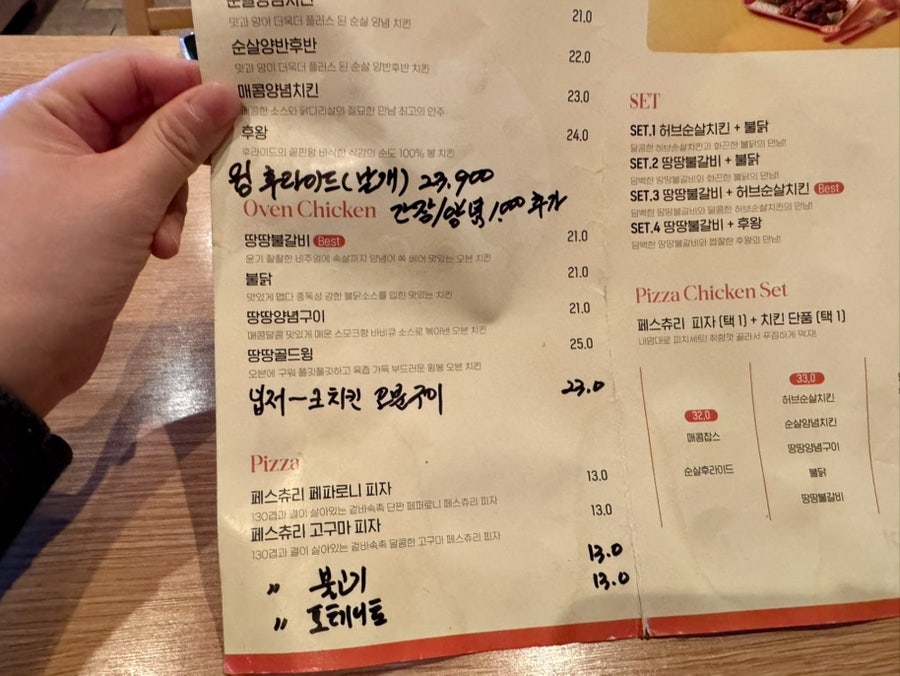 순살양념치킨
맛과 양이 더욱더 플러스 된 순살 양념 치킨
21.0
순살양반후반
맛과 양이 더욱더 플러스 된 순살 양반후반 치킨
22.0
매콤양념치킨
23.0
매콤한 소스와 닭다리살의 절묘한 만남 최고의 안주
후왕
24.0
후라이드의 끝판왕 바삭한 식감의 순도 100% 봉 치킨
윙 후라이드(날개) 23,900
Oven Chicken 간장/양념 1,000 추가
땅땅불갈비 Best
21.0
윤기 촬촬한 비주얼에 속살까지 양념이 쏙 베어 맛있는 오븐 치킨
불닭
21.0
맛있게 맵다 중독성 강한 불닭소스를 입힌 맛있는 치킨
땅땅양념구이
21.0
매콤달콤 맛있게 매운 스모크향 바비큐 소스로 볶아낸 오븐 치킨
땅땅골드윙
25.0
오븐에 구워 쫄깃쫄깃하고 육즙 가득 부드러운 윙봉 오븐 치킨
넙저-크치킨 오븐구이 23.0
Pizza
페스츄리 페파로니 피자
13.0
130겹과 결이 살아있는 겉바속촉 단짠 페퍼로니 페스츄리 피자
페스츄리 고구마 피자
13.0
130겹과 결이 살아있는 겉바속촉 달콤한 고구마 페스츄리 피자
〃 불고기 13.0
〃 포테이토 13.0
SET
SET.1 허브순살치킨 + 불닭
달콤한 허브순살치킨과 화끈한 불닭의 만남!
SET.2 땅땅불갈비 + 불닭
담백한 땅땅불갈비와 화끈한 불닭의 만남!
SET.3 땅땅불갈비 + 허브순살치킨 Best
담백한 땅땅불갈비와 달콤한 허브순살치킨의 만남!
SET.4 땅땅불갈비 + 후왕
담백한 땅땅불갈비와 짭짤한 후왕의 만남!
Pizza Chicken Set
페스츄리 피자 (택 1) + 치킨 단품 (택 1)
내맘대로 피치세트! 취향껏 골라서 푸짐하게 먹자!
32.0
매콤찹스
순살후라이드
33.0
허브순살치킨
순살양념치킨
땅땅양념구이
불닭
땅땅불갈비